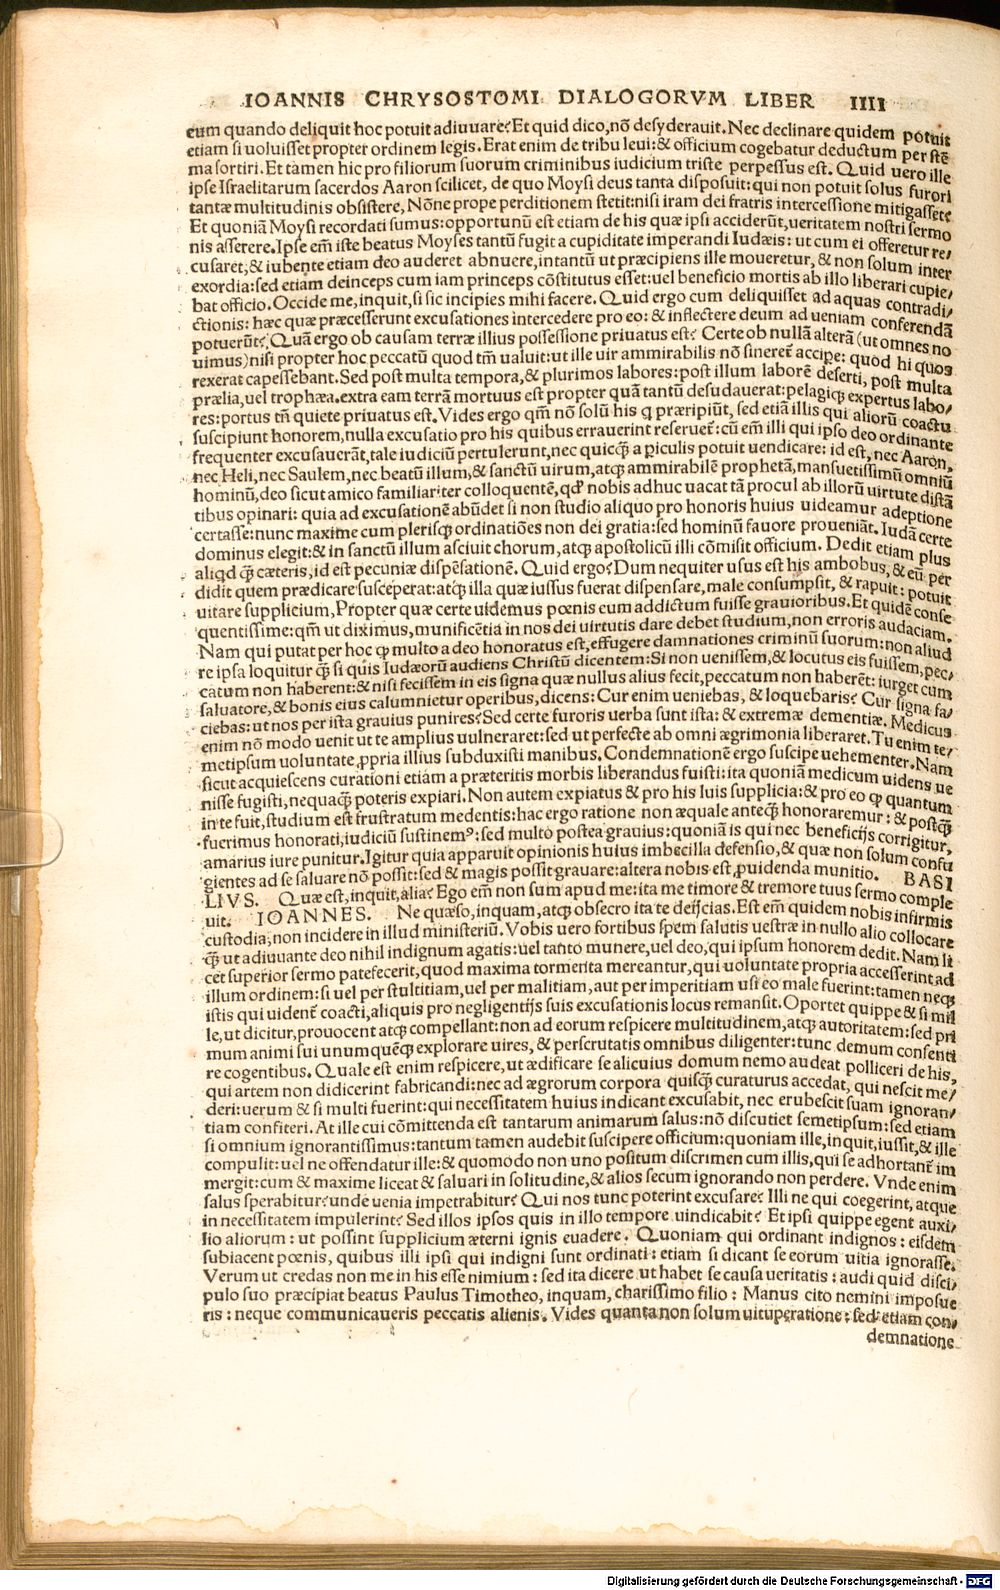 IOANNIS CHRYSOSTOMI DIALOGORVM LIBER IIII
eum quando deliquit hoc potuit adiuuare? Et quid dico, nō desyderauit. Nec declinare quidem potuit
etiam si uoluisset propter ordinem legis. Erat enim de tribu leui: & officium cogebatur deductum per stē
ma sortiri. Et tamen hic pro filiorum suorum criminibus iudicium triste perpessus est. Quid uero ille
ipse Israelitarum sacerdos Aaron scilicet, de quo Moysi deus tanta disposuit: qui non potuit solus furori
tantæ multitudinis obsistere, Nōne prope perditionem stetit: nisi iram dei fratris intercessione mitigasset?
Et quoniā Moysi recordati sumus: opportunū est etiam de his quæ ipsi acciderūt, ueritatem nostri sermo
nis asserere. Ipse em̄ iste beatus Moyses tantū fugit a cupiditate imperandi Iudæis: ut cum ei offeretur re/
cusaret, & iubente etiam deo auderet abnuere, intantū ut præcipiens ille moueretur, & non solum inter
exordia: sed etiam deinceps cum iam princeps cōstitutus esset: uel beneficio mortis ab illo liberari cupie/
bat officio. Occide me, inquit, si sic incipies mihi facere. Quid ergo cum deliquisset ad aquas contradi/
ctionis: hæc quæ præcesserunt excusationes intercedere pro eo: & inflectere deum ad ueniam conferendā
potuerūt? Quā ergo ob causam terræ illius possessione priuatus est? Certe ob nullā alterā (ut omnes no
uimus) nisi propter hoc peccatū quod tm̄ ualuit: ut ille uir ammirabilis nō sineret̄ accipe: quod hi quos
rexerat capessebant. Sed post multa tempora, & plurimos labores: post illum laborē deserti, post multa
prælia, uel trophæa. extra eam terrā mortuus est propter quā tantū desudauerat: pelagiqꝫ expertus labo/
res: portus tn̄ quiete priuatus est. Vides ergo qm̄ nō solū his q præripiūt, sed etiā illis qui aliorū coactu
suscipiunt honorem, nulla excusatio pro his quibus errauerint reseruet̄: cū em̄ illi qui ipso deo ordinante
frequenter excusauerāt, tale iudiciū pertulerunt, nec quicq̄ a piculis potuit uendicare: id est, nec Aaron,
nec Heli, nec Saulem, nec beatū illum, & sanctū uirum, atqꝫ ammirabilē prophetā, mansuetissimū omniū
hominū, deo sicut amico familiariter colloquentē, qđ nobis adhuc uacat tā procul ab illorū uirtute distā
tibus opinari: quia ad excusationē abūdet si non studio aliquo pro honoris huius uideamur adeptione
certasse: nunc maxime cum plerisqꝫ ordinatiōes non dei gratia: sed hominū fauore proueniāt. Iudā certe
dominus elegit: & in sanctū illum asciuit chorum, atqꝫ apostolicū illi cōmisit officium. Dedit etiam plus
aliqd q̄ cæteris, id est pecuniæ dispēsationē. Quid ergo? Dum nequiter usus est his ambobus, & eū per
didit quem prædicare susceperat: atqꝫ illa quæ iussus fuerat dispensare, male consumpsit, & rapuit: potuit
uitare supplicium, Propter quæ certe uidemus pœnis cum addictum fuisse grauioribus. Et quidē conse
quentissime: qm̄ ut diximus, munificētia in nos dei uirtutis dare debet studium, non erroris audaciam.
Nam qui putat per hoc ꝙ multo a deo honoratus est, effugere damnationes criminū suorum: non aliud
re ipsa loquitur q̄ si quis Iudæorū audiens Christū dicentem: Si non uenissem, & locutus eis fuissem, pec/
catum non haberent: & nisi fecissem in eis signa quæ nullus alius fecit, peccatum non haberēt: iurget cum
saluatore, & bonis eius calumnietur operibus, dicens: Cur enim ueniebas, & loquebaris? Cur signa fa/
ciebas: ut nos per ista grauius punires? Sed certe furoris uerba sunt ista: & extremæ dementiæ. Medicus
enim nō modo uenit ut te amplius uulneraret: sed ut perfecte ab omni ægrimonia liberaret. Tu enim te/
metipsum uoluntate ꝓpria illius subduxisti manibus. Condemnationē ergo suscipe uehementer. Nam
sicut acquiescens curationi etiam a præteritis morbis liberandus fuisti: ita quoniā medicum uidens ue
nisse fugisti, nequaq̄ poteris expiari. Non autem expiatus & pro his luis supplicia: & pro eo ꝙ quantum
in te fuit, studium est frustratum medentis: hac ergo ratione non æquale anteq̄ honoraremur: & postq̄
fuerimus honorati, iudiciū sustinemꝰ: sed multo postea grauius: quoniā is qui nec beneficijs corrigitur,
amarius iure punitur. Igitur quia apparuit opinionis huius imbecilla defensio, & quæ non solum confu
gientes ad se saluare nō possit: sed & magis possit grauare: altera nobis est ꝓuidenda munitio. BASI
LIVS. Quæ est, inquit, alia? Ego em̄ non sum apud me: ita me timore & tremore tuus sermo comple
uit. IOANNES. Ne quæso, inquam, atqꝫ obsecro ita te deijcias. Est em̄ quidem nobis infirmis
custodia, non incidere in illud ministeriū. Vobis uero fortibus spem salutis uestræ in nullo alio collocare
q̄ ut adiuuante deo nihil indignum agatis: uel tanto munere, uel deo, qui ipsum honorem dedit. Nam li
cet superior sermo patefecerit, quod maxima tormenta mereantur, qui uoluntate propria accesserint ad
illum ordinem: si uel per stultitiam, uel per malitiam, aut per imperitiam usi eo male fuerint: tamen neqꝫ
istis qui uident̄ coacti, aliquis pro negligentijs suis excusationis locus remansit. Oportet quippe & si mil
le, ut dicitur, prouocent atqꝫ compellant: non ad eorum respicere multitudinem, atqꝫ autoritatem: sed pri
mum animi sui unumquēqꝫ explorare uires, & perscrutatis omnibus diligenter: tunc demum consenti
re cogentibus. Quale est enim respicere, ut ædificare se alicuius domum nemo audeat polliceri de his,
qui artem non didicerint fabricandi: nec ad ægrorum corpora quisq̄ curaturus accedat, qui nescit me/
deri: uerum & si multi fuerint: qui necessitatem huius indicant excusabit, nec erubescit suam ignoran/
tiam confiteri. At ille cui cōmittenda est tantarum animarum salus: nō discutiet semetipsum: sed etiam
si omnium ignorantissimus: tantum tamen audebit suscipere officium: quoniam ille, inquit, iussit, & ille
compulit: uel ne offendatur ille: & quomodo non uno positum discrimen cum illis, qui se adhortant̄ im
mergit: cum & maxime liceat & saluari in solitudine, & alios secum ignorando non perdere. Vnde enim
salus sperabitur? unde uenia impetrabitur? Qui nos tunc poterint excusare? Illi ne qui coegerint, atque
in necessitatem impulerint? Sed illos ipsos quis in illo tempore uindicabit? Et ipsi quippe egent auxi/
lio aliorum: ut possint supplicium æterni ignis euadere. Quoniam qui ordinant indignos: eisdem
subiacent pœnis, quibus illi ipsi qui indigni sunt ordinati: etiam si dicant se eorum uitia ignorasse.
Verum ut credas non me in his esse nimium: sed ita dicere ut habet se causa ueritatis: audi quid disci/
pulo suo præcipiat beatus Paulus Timotheo, inquam, charissimo filio: Manus cito nemini imposue
ris: neque communicaueris peccatis alienis. Vides quanta non solum uituperatione: sed etiam con/
demnatione
Digitalisierung gefördert durch die Deutsche Forschungsgemeinschaft - DFG